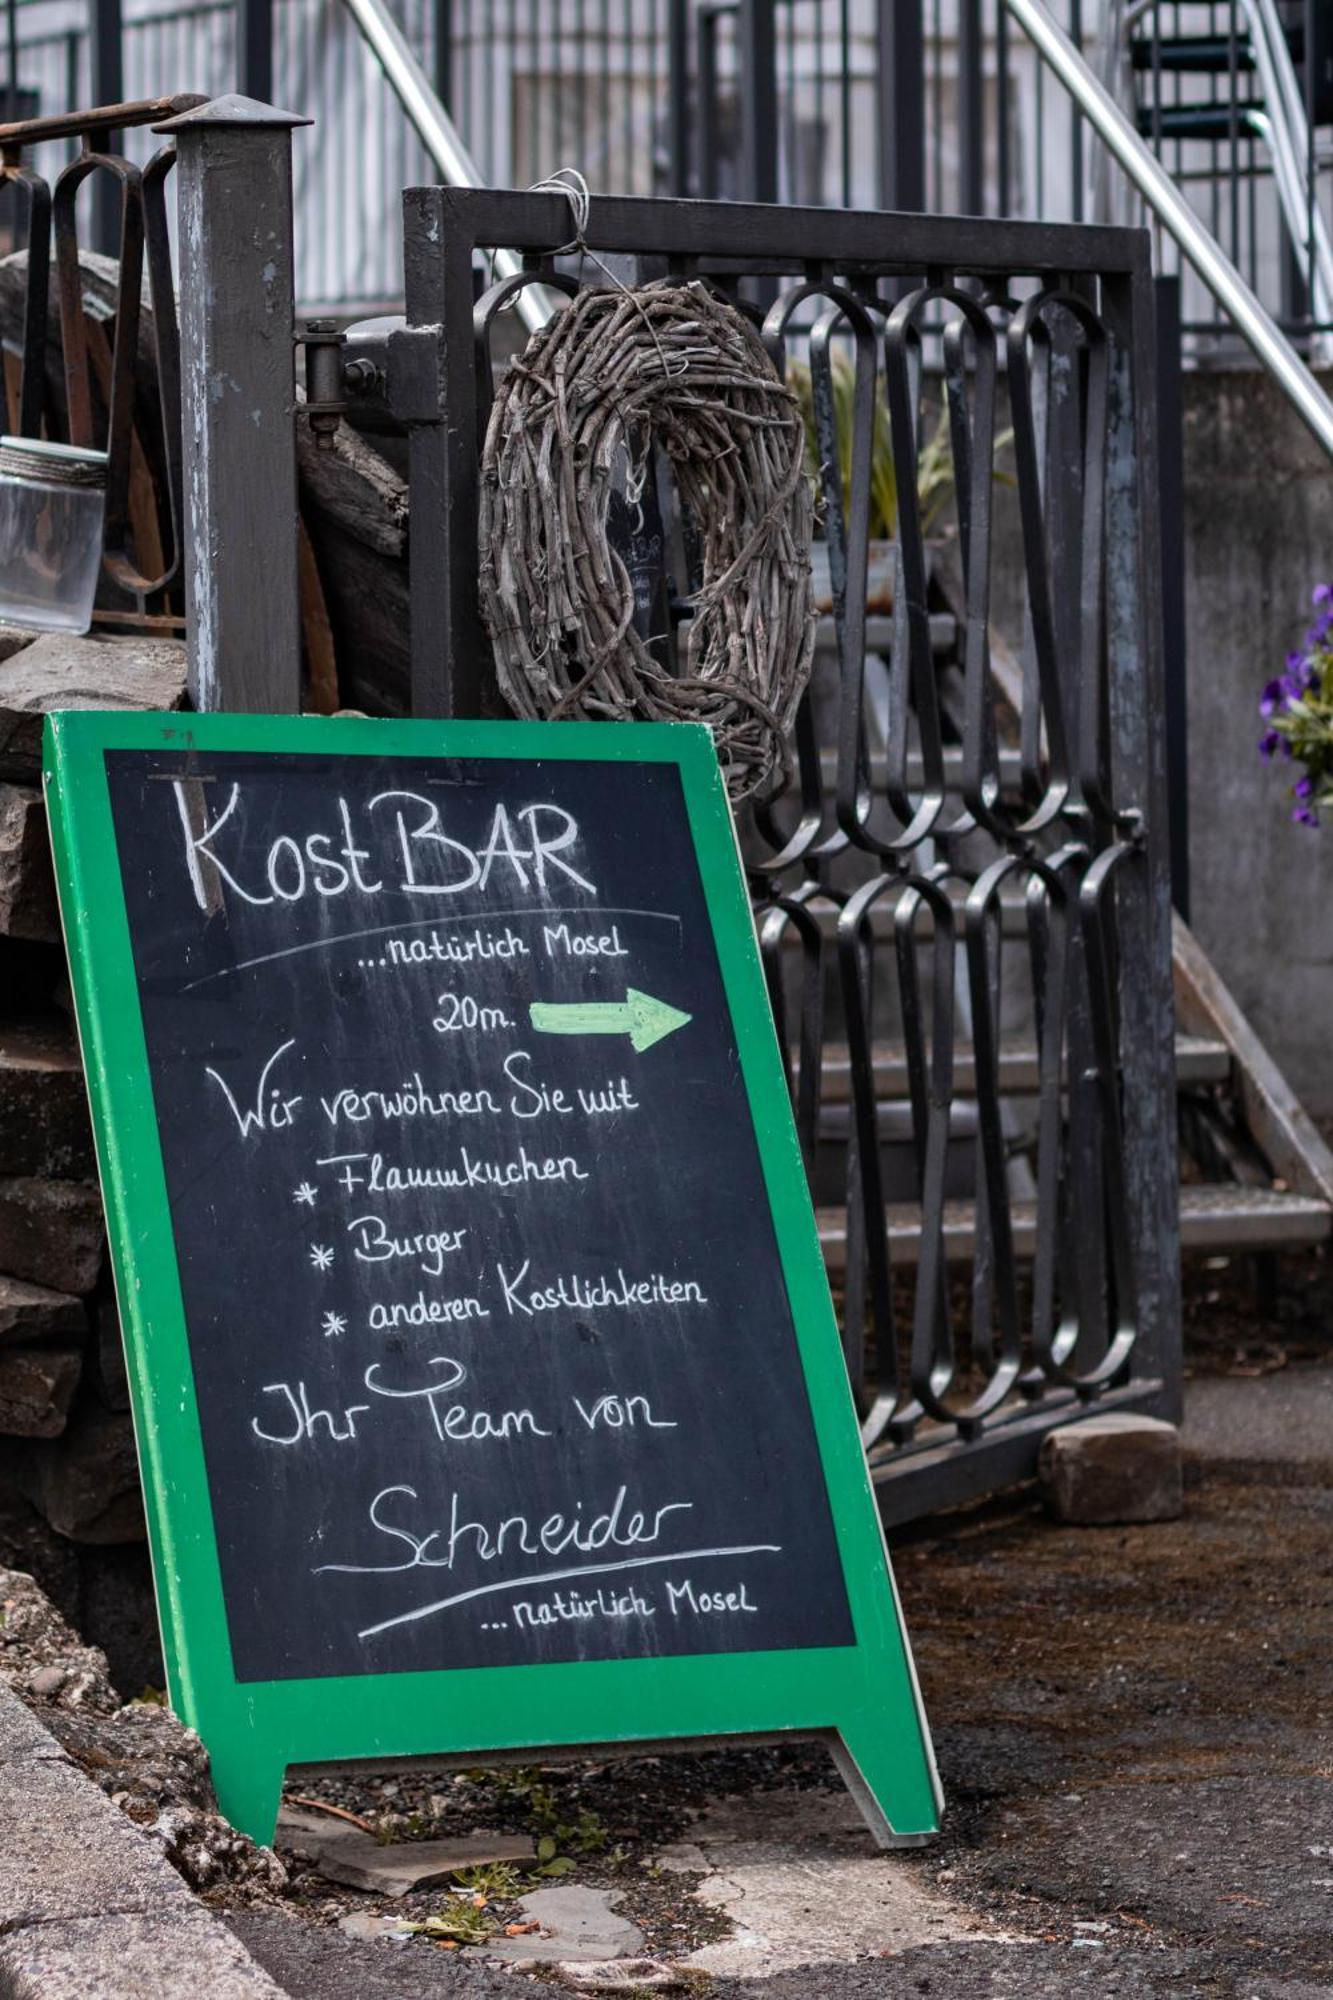 KostBAR
...natürlich Mosel
20m.
Wir verwöhnen Sie mit
* Flammkuchen
* Burger
* anderen Kostlichkeiten
Ihr Team von
Schneider
...natürlich Mosel